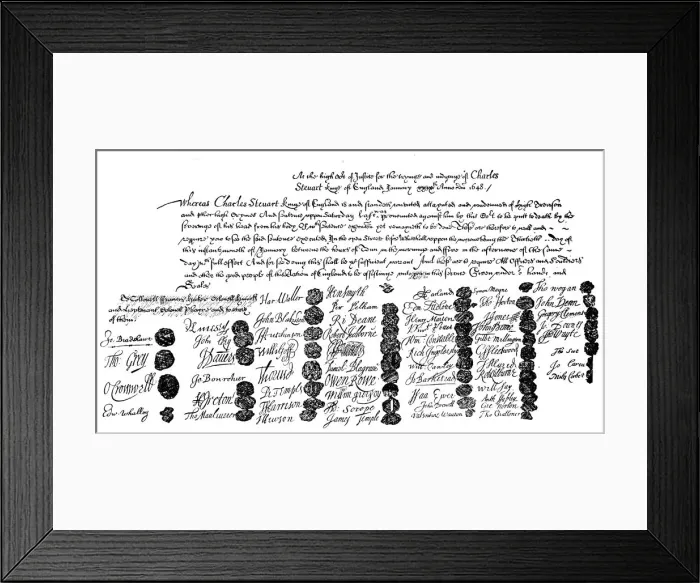 At the high Co͠rt of Justice for the tryinge and iudginge of Charles
Steuart Kinge of England January xxixth Anno Dm̄ 1648./
Whereas Charles Steuart Kinge of England is and standeth convicted attaynted and condemned of High Treason
and other high Crymes And sentence uppon Saturday last pronounced against him by this Co͠rt to be putt to death by the
severinge of his head from his body Of wch sentence execuc̃on yet remayneth to be done These are therefore to will and
require you to see the said sentence executed In the open Streete before Whitehall uppon the morrowe being the Thirtieth day of
this instante moneth of January betweene the houres of Tenn in the morninge and Five in the afternoone of the same
day wth full effect And for soe doing this shall be yor sufficient warrant And these are to require All Officers and Souldiers
and other the good people of this Nation of England to be assistinge unto you in this service Given under our hands and
Seales
To Collonell
and
of them
Jo Bradshawe
Tho Grey
O Cromwell
Edw Whalley
M Livesey
John Okey
J Danvers
Jo Bourchier
H Ireton
Tho Mauleverer
Har Waller
John Blakiston
J Hutchinson
Willi Goff
Tho Pride
P Temple
T Harrison
J Hewson
Hen Smyth
Per Pelham
Ri Deane
Robert Tichborne
H Edwardes
Daniel Blagrave
Owen Rowe
William Purefoy
Ad Scrope
James Temple
A Garland
Edm Ludlowe
Henry Marten
Vinct Potter
Wm Constable
Rich Ingoldesby
Will Cawley
Jo Barkstead
Isaa Ewer
John Dixwell
Valentine Wauton
Symon Mayne
Tho Horton
J Jones
John Moore
Gilbt Millington
G Fleetwood
J Alured
Robt Lilburne
Will Say
Anth Stapley
Gre Norton
Tho Challoner
Tho Wogan
John Venn
Gregory Clement
Jo Downes
Tho Wayte
Tho Scot
Jo Carew
Miles Corbet